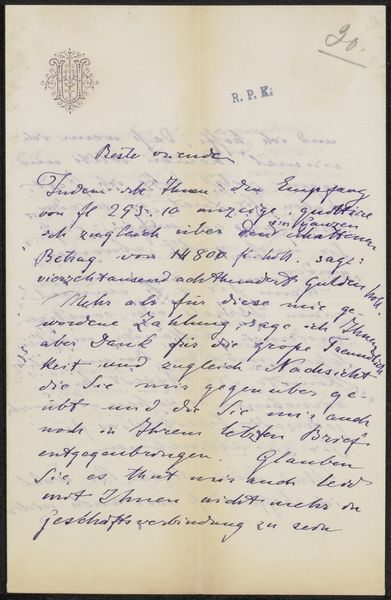 30.
R. P. K.
Beste vriende
Indem ich Ihnen den Empfang
von fl 293.10 anzeige, quittire
ich zugleich über den im ganzen erhaltenen
Betrag von 14800 fr. holl. sage:
vierzehntausend achthundert Gulden holl.
Mehr als für diese mir ge-
wordene Zahlung sage ich Ihnen
aber Dank für die große Freundlich
keit und zugleich Nachsicht
die Sie mir gegenüber ge-
übt und die Sie mir auch
noch in Ihrem letzten Brief
entgegenbringen. Glauben
Sie, es thut mir auch leid
mit Ihnen nicht mehr in
Geschäftsverbindung zu sein